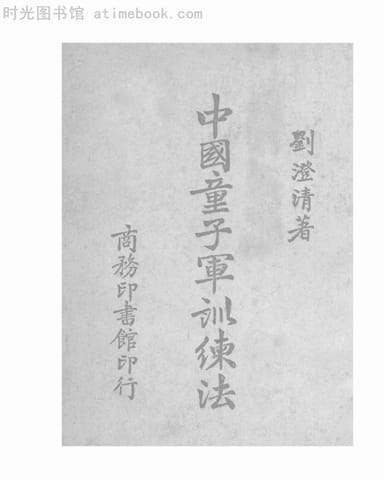 时光图书馆 - atimebook.com
劉澄清著
中國童子軍訓練法
商務印書館印行